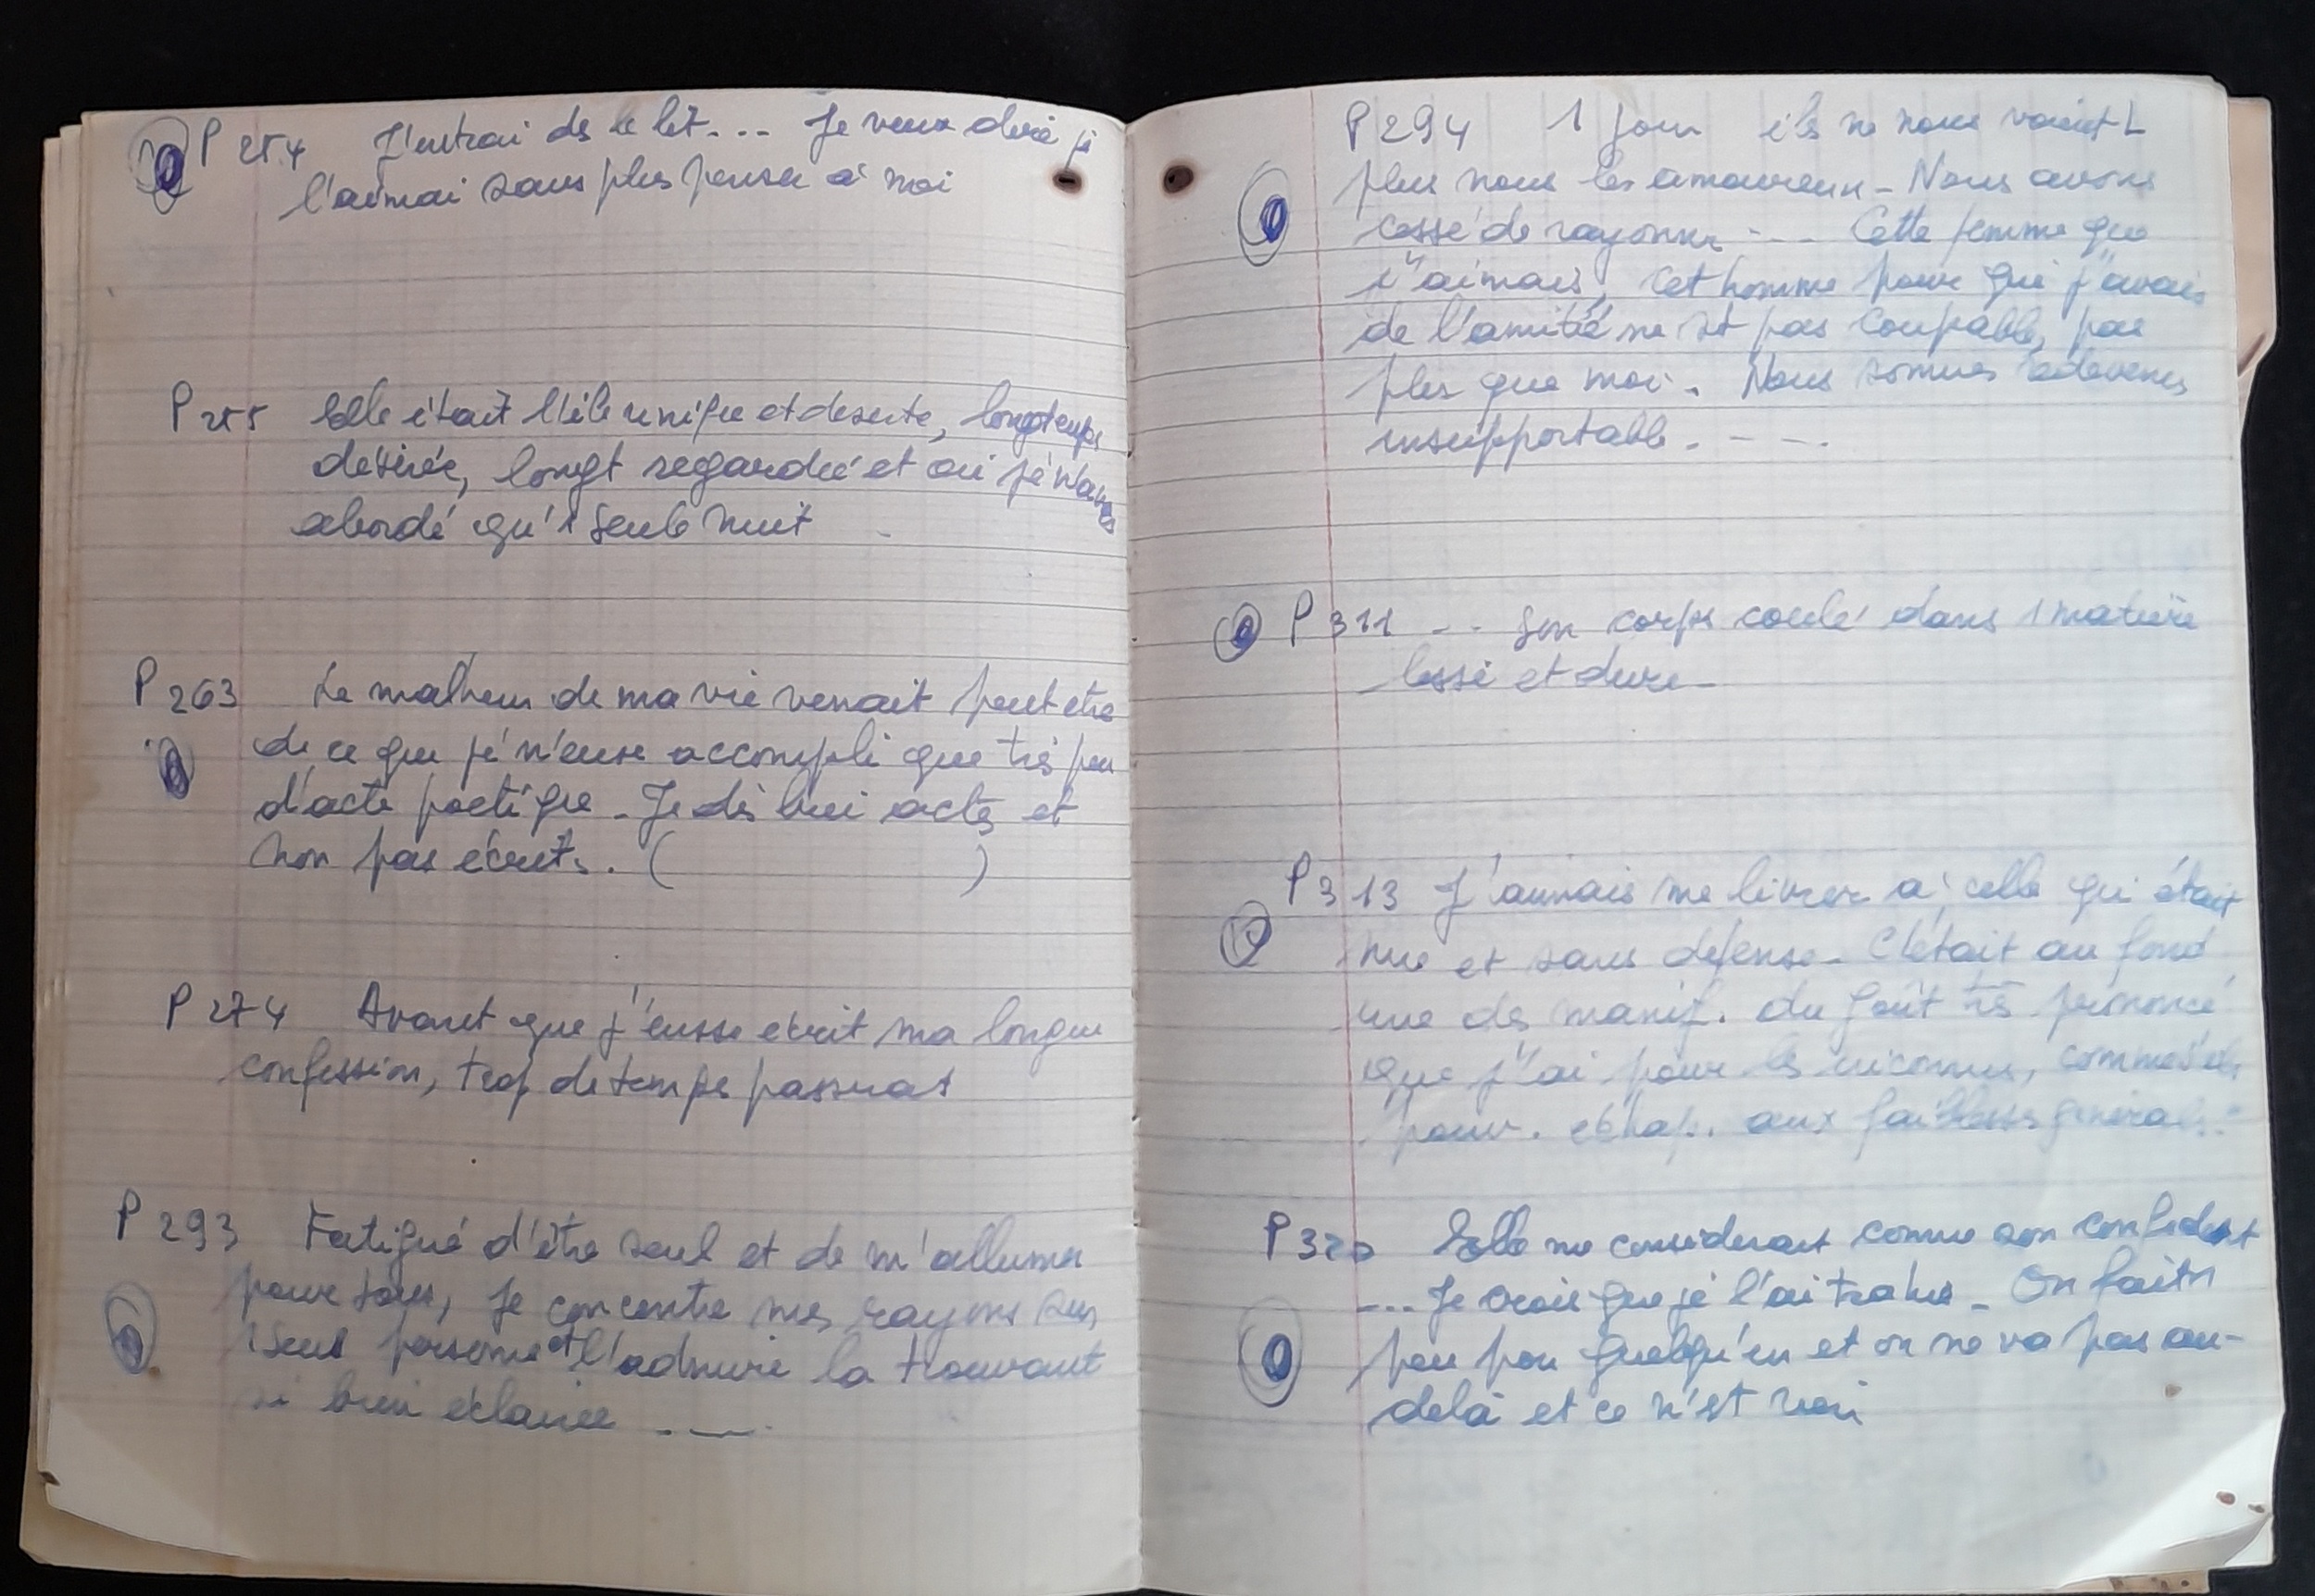 P 254 J'entrai ds le lit... Je veux dire je
l'aimai sans plus penser à moi
P 255 Elle était l'île unique et deserte, longtemps
desirée, longt regardée et où je n'avais
abordé qu'1 seule nuit
P 263 Le malheur de ma vie venait peut etre
de ce que je n'euse accompli que très peu
d'acte poetique - Je dis bien actes et
non pas écrits. ( )
P 274 Avant que j'eusse ecrit ma longue
confession, trop de temps passerait
P 293 Fatigué d'être seul et de m'allumer
pour tous, je concentre mes rayons sur
1 seul personne et l'admire la trouvant
si bien éclairée ...
P 294 1 jour ils ne nous voient
plus nous les amoureux - Nous avons
cessé de rayonner --- Cette femme que
j'aimais, cet homme pour qui j'avais
de l'amitié ne st pas coupable, pas
plus que moi. Nous sommes redevenus
insupportable. - - -
P 311 -- Son corps coulé dans 1 matière
lisse et dure -
P 313 J'aimais me livrer à celle qui était
nue et sans defense - C'était au fond
une des manif. du goût très prononcé
que j'ai pour les inconnus, comme s'ils
pouv. échap. aux faiblesses générales.
P 320 Elle me considerait comme son confident
.... Je crois que je l'ai trahie - On trahit
peu pou quelqu'un et on ne va pas au-
delà et ce n'est rien